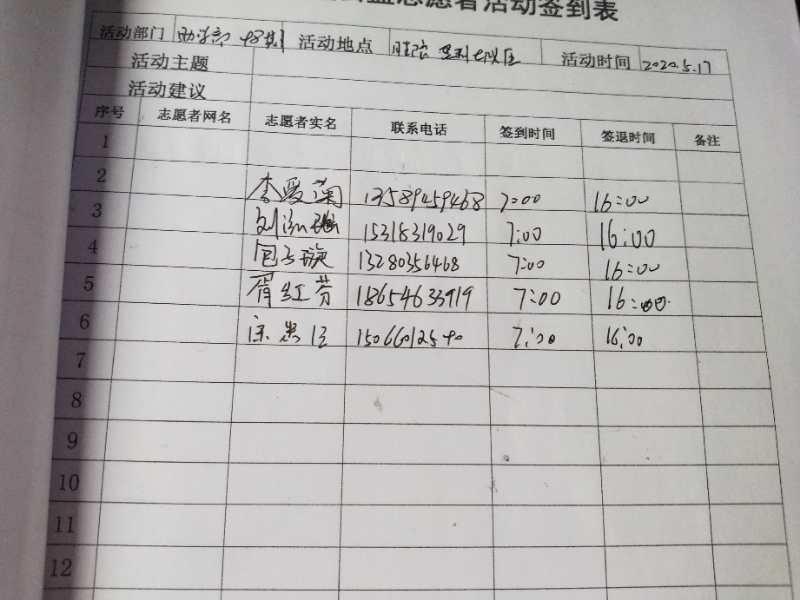 志愿者活动签到表
活动部门 助学部 活动地点 垦利 活动时间 2020.5.17
活动主题
活动建议
序号 志愿者网名 志愿者实名 联系电话 签到时间 签退时间 备注
1
2 李爱菊 13589459468 7:00 16:00
3 15318319029 7:00 16:00
4 13280356468 7:00 16:00
5 胥红芬 18654633919 7:00 16:00
6 15066012540 7:00 16:00
7
8
9
10
11
12